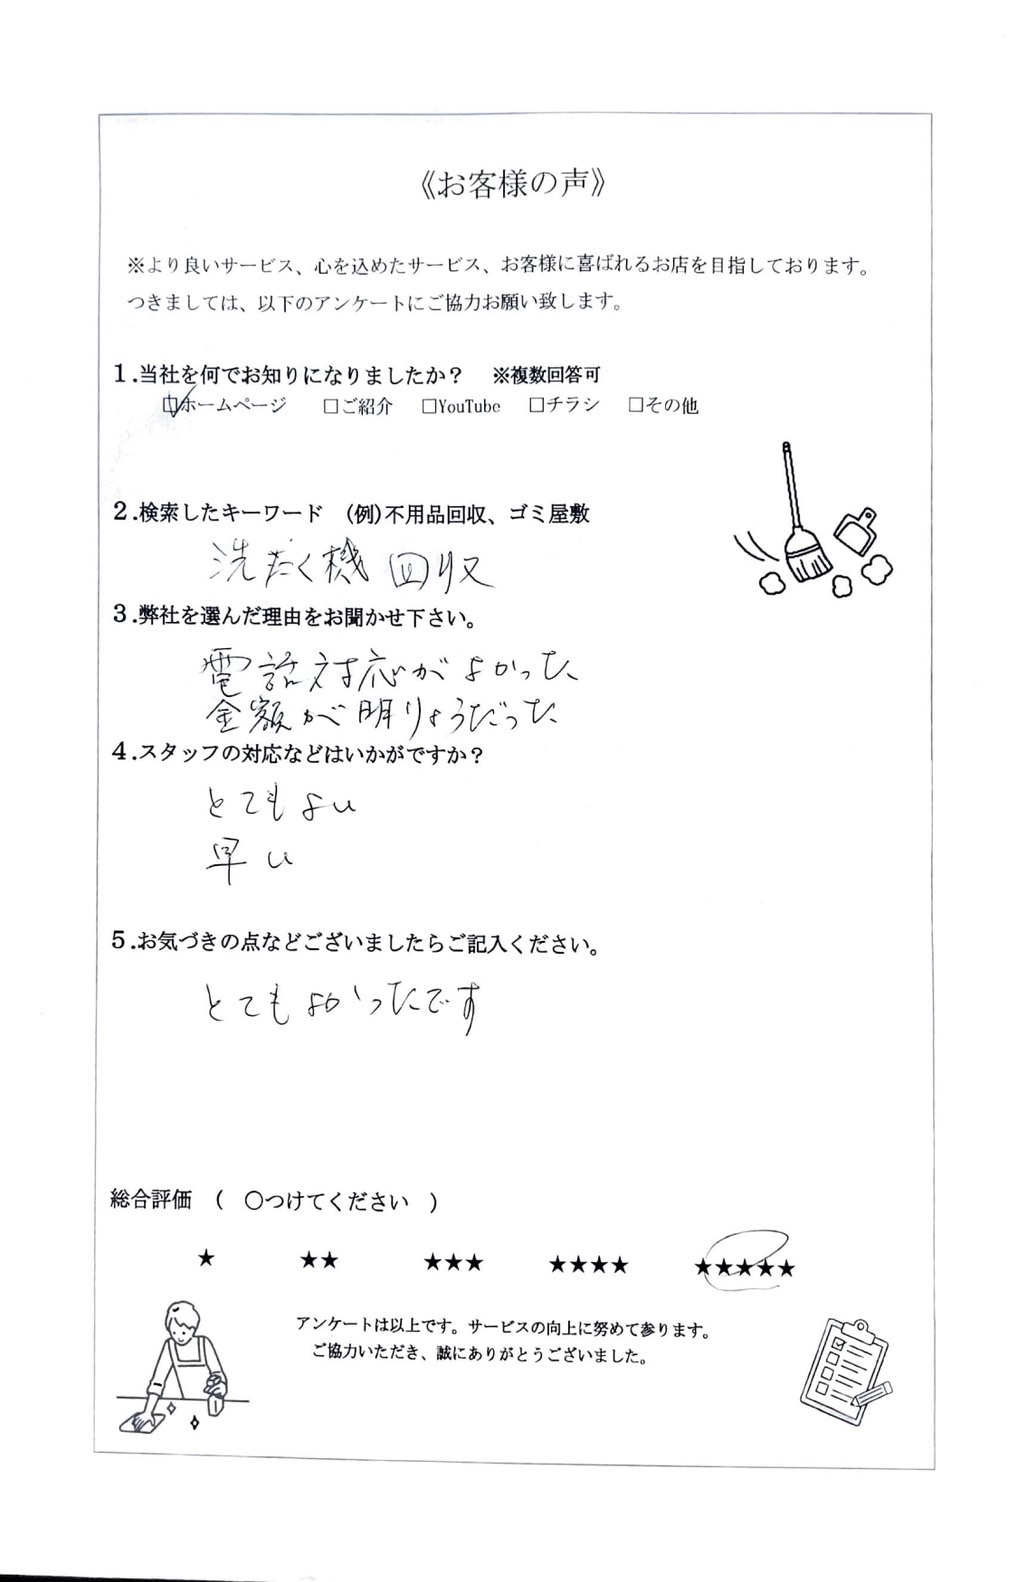 《お客様の声》
※より良いサービス、心を込めたサービス、お客様に喜ばれるお店を目指しております。
つきましては、以下のアンケートにご協力お願い致します。
1.当社を何でお知りになりましたか？　※複数回答可
☑ホームページ　□ご紹介　□YouTube　□チラシ　□その他
2.検索したキーワード　(例)不用品回収、ゴミ屋敷
洗たく機 回収
3.弊社を選んだ理由をお聞かせ下さい。
電話対応がよかった
金額が明りょうだった
4.スタッフの対応などはいかがですか？
とてもよい
早い
5.お気づきの点などございましたらご記入ください。
とてもよかったです
総合評価　(　〇つけてください　)
★　★★　★★★　★★★★　★★★★★
アンケートは以上です。サービスの向上に努めて参ります。
ご協力いただき、誠にありがとうございました。